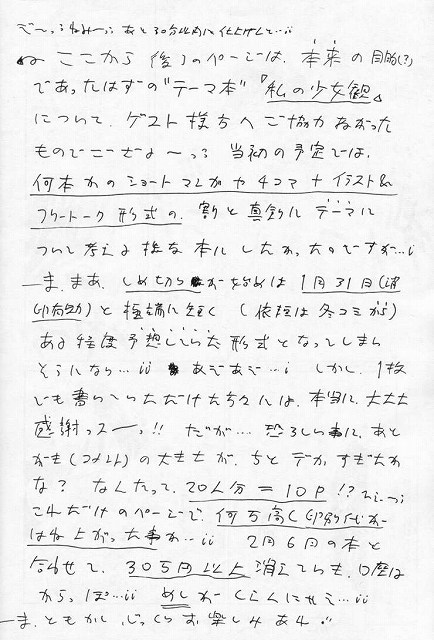 で〜っうねみ〜っ あと30分以内に仕上げんと…ii
ここから後ろのページは、本来の目的(?)
であったはずの"テーマ本"『私の少女観』
について、ゲスト様方へご協力ねがった
ものでございますよ〜っっ 当初の予定では、
何本かのショートマンガや4コマ+イラスト&
フリートーク形式の、割と真剣にテーマに
ついて考える様な本にしたかったのですが…i
ま、まあ、しめ切りが始めは1月31日(消
印有効)と極端に短く (依頼は冬コミから)
ある程度予想していた形式となってしまい
そうになり…ii あであであ…i しかし、1枚
でも書いていただけた方々には、本当に、大大大
感謝っスーっ!! だが… 恐ろしい事に、あと
がき(コメント)の大きさが、ちとデカすぎたか
な? なんたって、20人分=10P!?
これだけのページで、何万高く印刷代が
はね上がった事か…ii 2月6日の本と
合わせて、30万円以上消えてらも、口座は
からっぽ…ii めしがくらんにゃえ…ii
ま、ともかく、じっくりお楽しみあれ